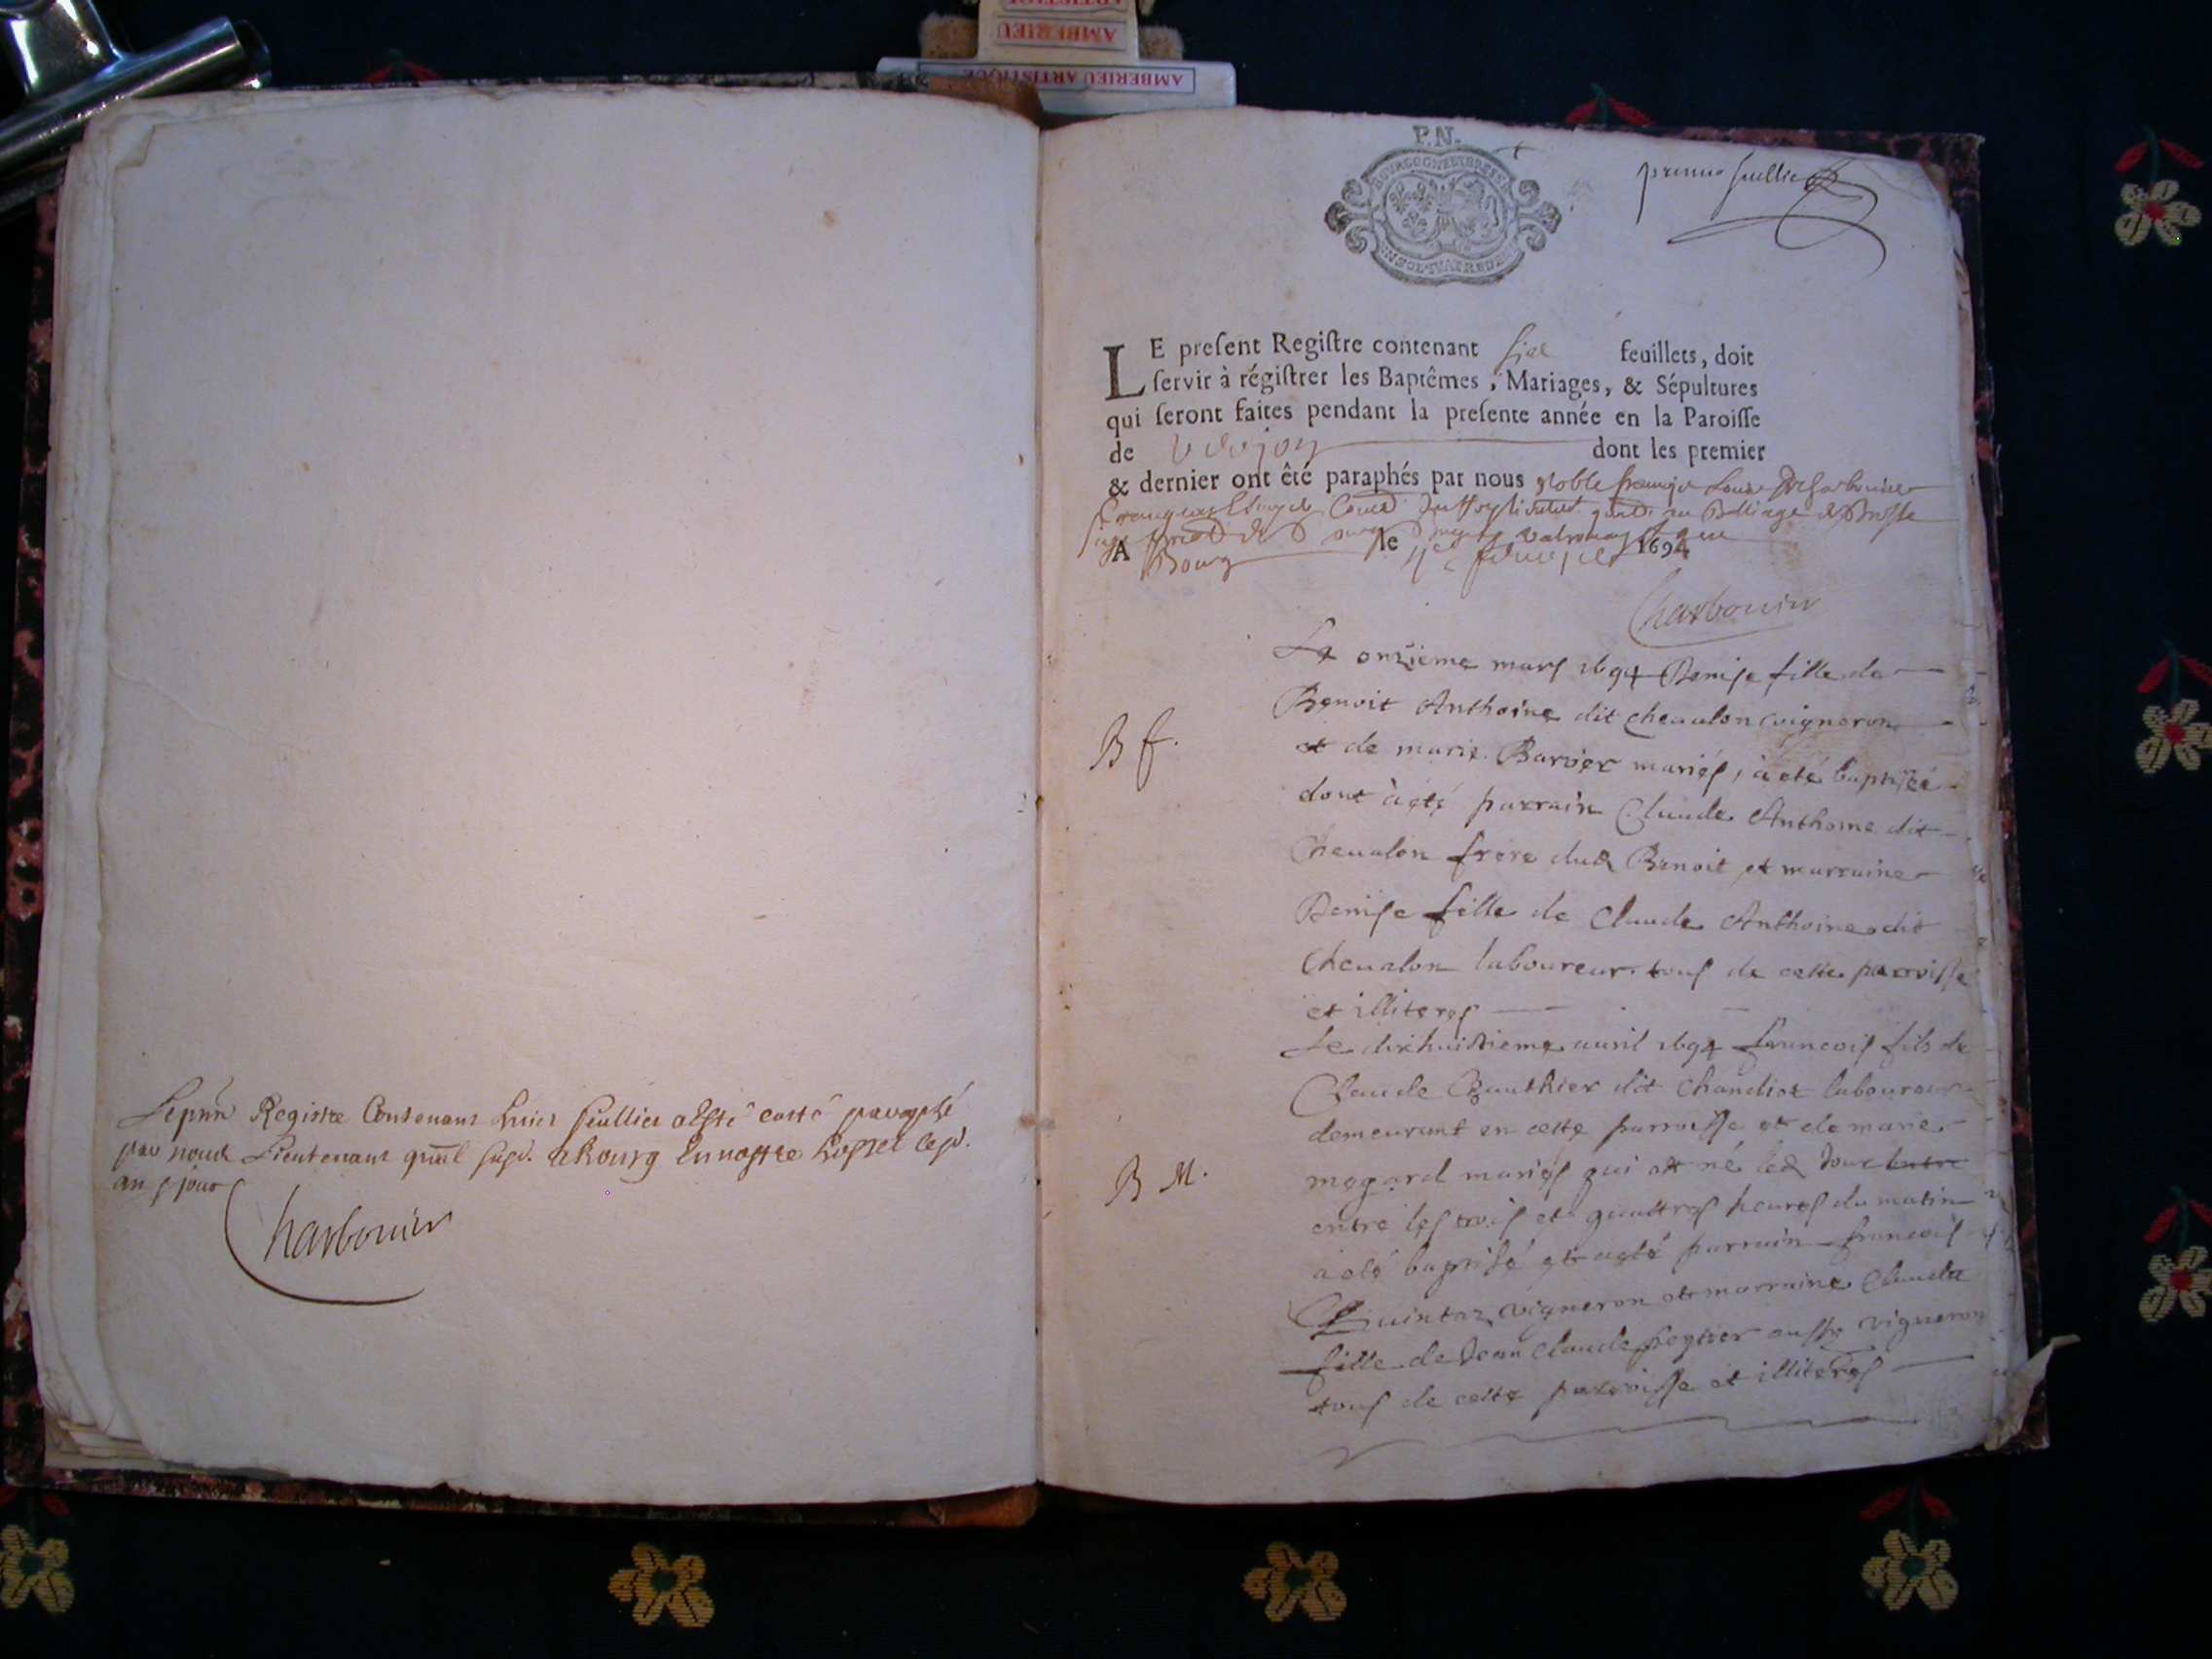 AMBERIEU
AMBERIEU ARTISTIQUE
Le pnt Registre Contenant huict feuillies a esté cotté paraphé
par nous Lieutenant gnãl susd. a Bourg En nostre hostel lesd.
an & jour
Charbonier
P.N.
BOURGOGNE ET BRESSE
premier feuillet
LE preſent Regiſtre contenant feuillets, doit
ſervir à régiſtrer les Baptêmes, Mariages, & Sépultures
qui ſeront faites pendant la preſente année en la Paroiſſe
de dont les premier
& dernier ont êté paraphés par nous Noble françois Louis Charbonier
A Bourg le 1694
Charbonier
Le onzieme mars 1694 Denise fille de
Benoit Anthoine dit cheualon vigneron
B f.
et de marie Barbier mariés, à eté baptisée
dont à eté parrain Claude Anthoine dit
Cheualon frere dud Benoit et marraine
Denise fille de Claude Anthoine dit
Cheualon laboureur tous de cette parroisse
et illiteres
Le dixhuictieme auril 1694 francois fils de
Claude Gauthier dit Chandiot laboureur
demeurant en cette parroisse et de marie
B M.
megard mariés qui est né led Jour entre
entre les trois et quattres heures du matin
à eté baptisé et a eté parrain francois
Quintaz vigneron et marraine Clauda
fille de Jean Claude aussy vigneron
tous de cette parroisse et illiteres